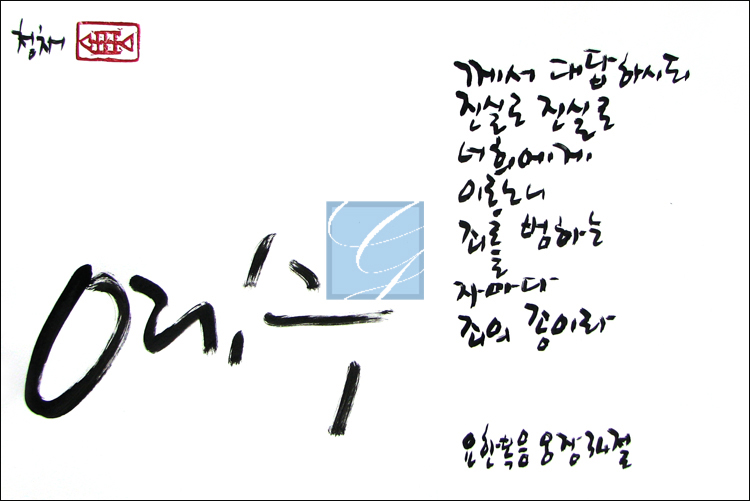 청채
예수
께서 대답하시되
진실로 진실로
너희에게
이르노니
죄를 범하는
자마다
죄의 종이라
요한복음 8장 34절